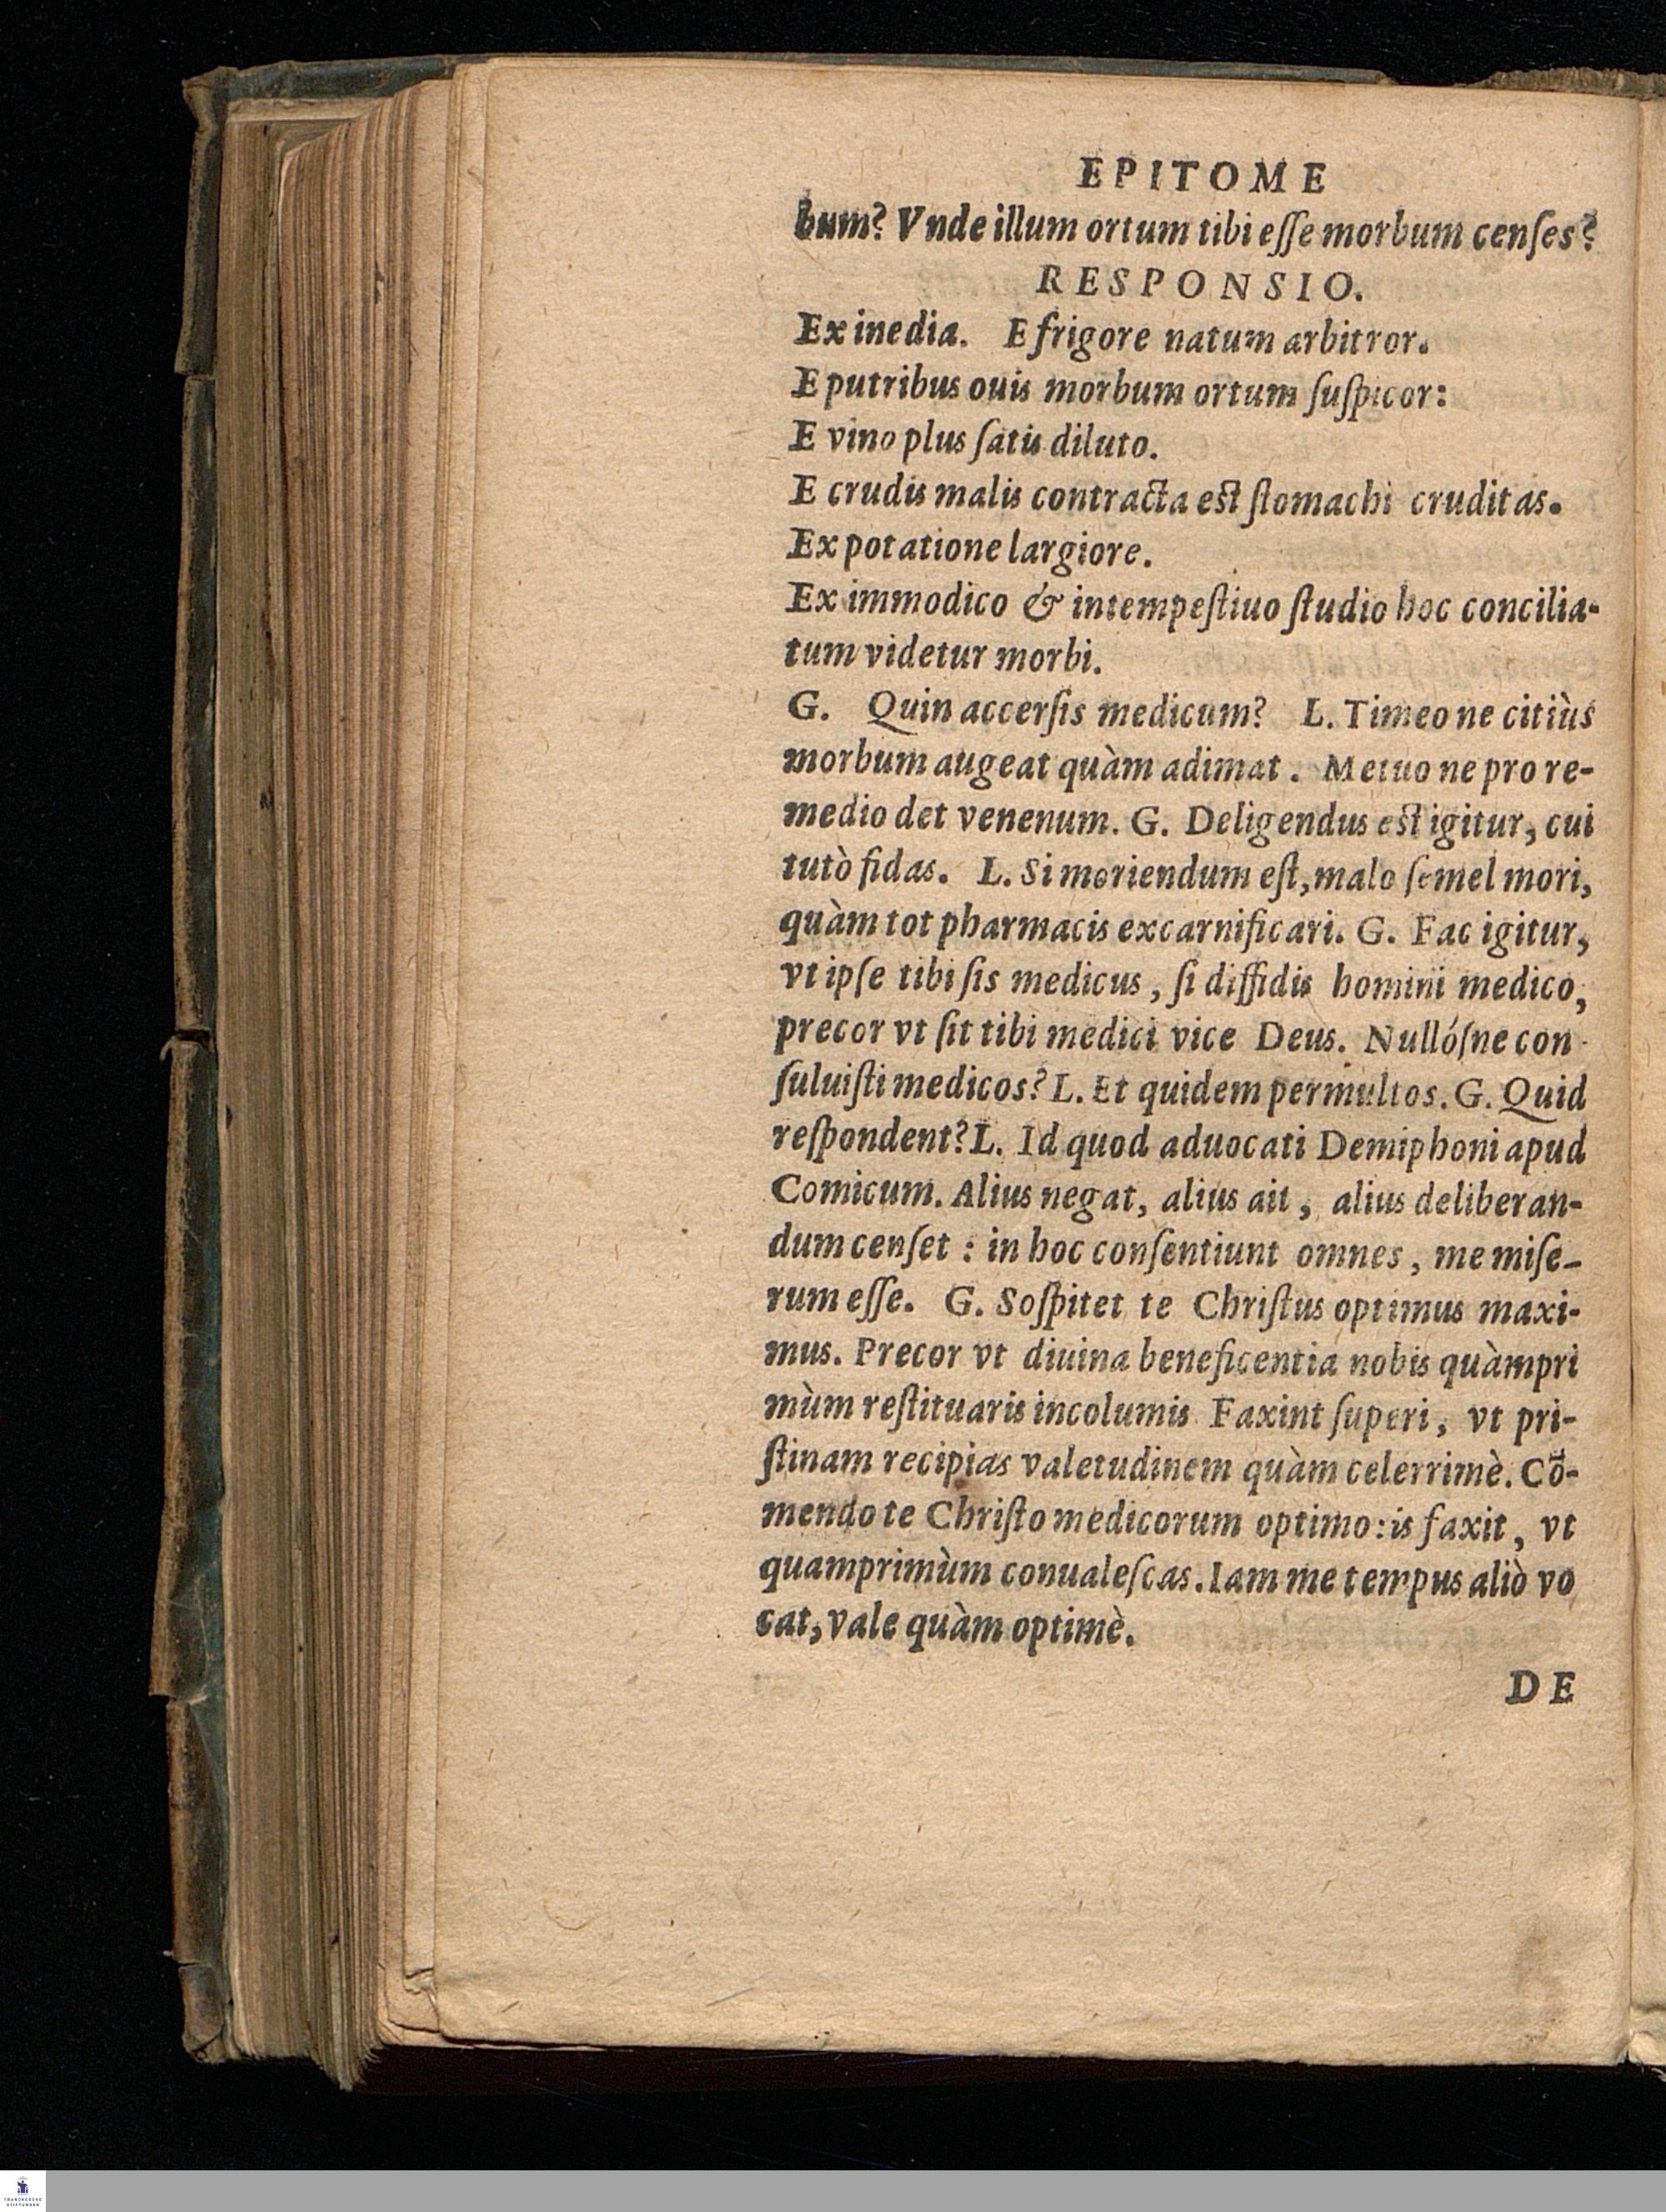 EPITOME
bum? Vnde illum ortum tibi eſſe morbum cenſes?
RESPONSIO.
Ex inedia. E frigore natum arbitror.
E putribus ouis morbum ortum ſuſpicor:
E vino plus ſatis diluto.
E crudis malis contracta est ſtomachi cruditas.
Ex potatione largiore.
Ex immodico & intempeſtiuo ſtudio hoc concilia-
tum videtur morbi.
G. Quin accerſis medicum? L. Timeo ne citiùs
morbum augeat quàm adimat. Metuo ne pro re-
medio det venenum. G. Deligendus est igitur, cui
tutò fidas. L. Si moriendum eſt, malo ſemel mori,
quàm tot pharmacis excarnificari. G. Fac igitur,
vt ipſe tibi ſis medicus, ſi diffidis homini medico,
precor vt ſit tibi medici vice Deus. Nullóſne con-
ſuluiſti medicos? L. Et quidem permultos. G. Quid
reſpondent? L. Id quod aduocati Demiphoni apud
Comicum. Alius negat, alius ait, alius deliberan-
dum cenſet: in hoc conſentiunt omnes, me miſe-
rum eſſe. G. Soſpitet te Chriſtus optimus maxi-
mus. Precor vt diuina beneficentia nobis quàmpri
mùm reſtituaris incolumis Faxint ſuperi, vt pri-
ſtinam recipias valetudinem quàm celerrimè. Cõ-
mendo te Chriſto medicorum optimo: is faxit, vt
quamprimùm conualeſcas. Iam me tempus aliò vo
cat, vale quàm optimè.
DE
FRANCKESCHE
STIFTUNGEN